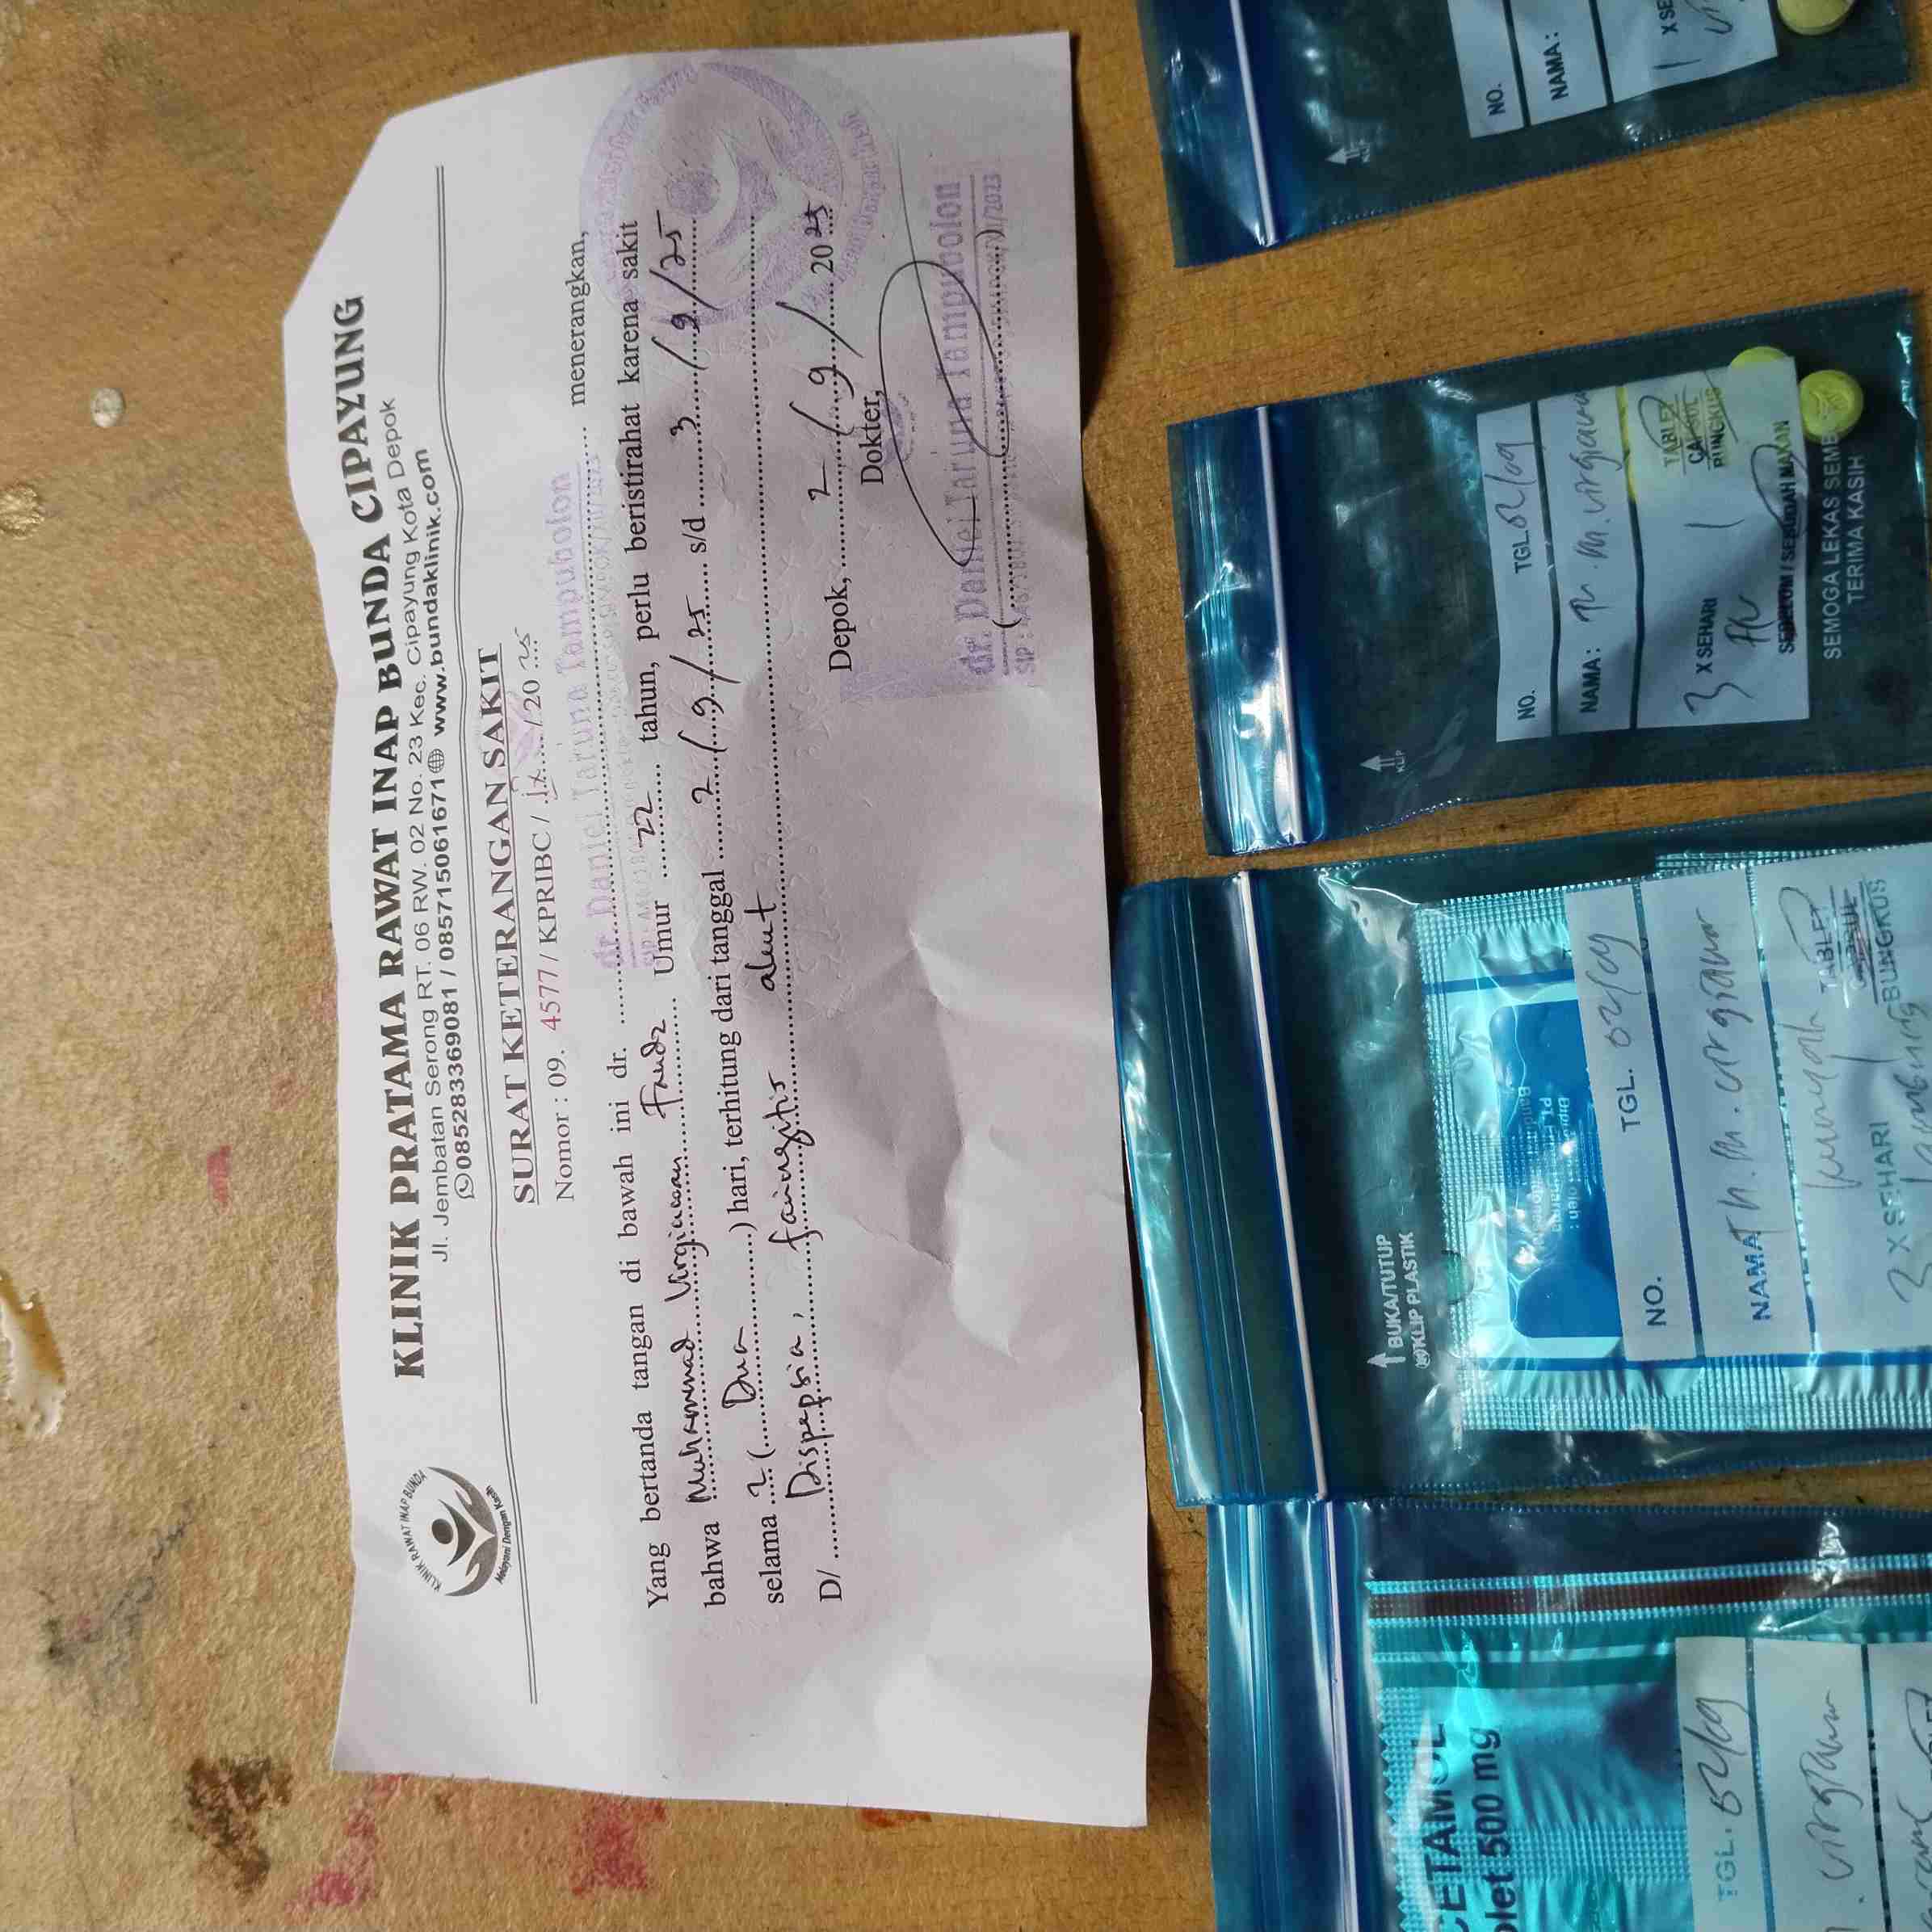 KLINIK RAWAT INAP BUNDA
Melayani Dengan Kasih
KLINIK PRATAMA RAWAT INAP BUNDA CIPAYUNG
Jl. Jembatan Serong RT. 06 RW. 02 No. 23 Kec. Cipayung Kota Depok
085283369081 / 085715061671 www.bundaklinik.com
SURAT KETERANGAN SAKIT
Nomor : 09. 4577 / KPRIBC / ix / 20 25
Yang bertanda tangan di bawah ini dr. dr. Daniel Taruna Tampubolon menerangkan,
bahwa Muhammad Virgiawan Umur 22 tahun, perlu beristirahat karena sakit
selama 2 ( Dua ) hari, terhitung dari tanggal 2 / 9 / 25 s/d 3 / 9 / 25
D/ Dispepsia, faringitis akut
Depok, 2 / 9 / 20 25
Dokter,
dr. Daniel Taruna Tampubolon
CETAMOL
blet 500 mg
TGL. 02/09
virgiawan
BUKA/TUTUP
KLIP PLASTIK
NO. TGL. 02/09
NAMA Tn. M. virgiawan
kunyah TABLET
3 X SEHARI 1 BUNGKUS
KLIP
NO. TGL. 02/09
NAMA: Tn. M. virgiawan
TABLET
CAPSUL
3 X SEHARI 1 BUNGKUS
SEBELUM / SESUDAH MAKAN
SEMOGA LEKAS SEMB
TERIMA KASIH
KLIP
NO.
NAMA:
1 X SE